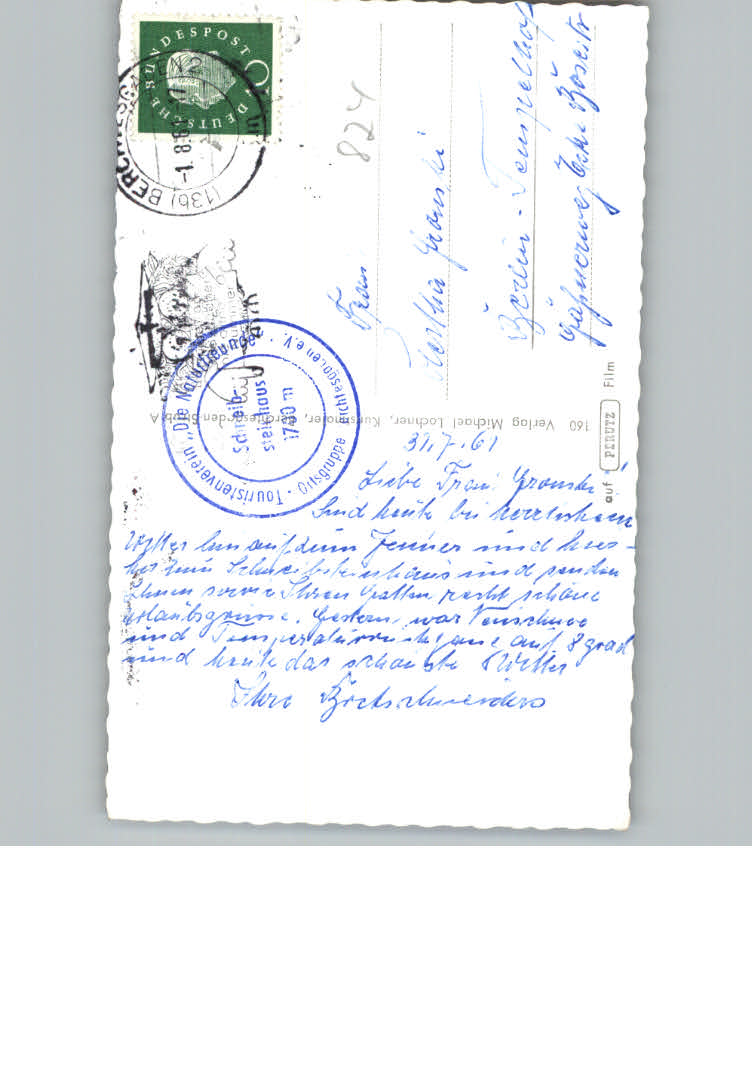 DEUTSCHE BUNDESPOST
(13b) BERCHTESGADEN 2
-1.8.61
824
Frau
Gronski
Berlin - Tempelhof
Ecke
Touristenverein „Die Naturfreunde" e.V. · Ortsgruppe Berchtesgaden
Schneib-
steinhaus
1700 m
160 Verlag Michael Lochner, Kunstmaler, Berchtesgaden
auf PERUTZ Film
31.7.61
Liebe Frau Gronski!
Sind heute bei herrlichem
Wetter hinauf zum Jenner und hier-
her zum Schneibsteinhaus und senden
Ihnen sowie Ihrem Gatten recht schöne
Urlaubsgrüsse. Gestern war Neuschnee
und Temperatur auf 8 grad
und heute das schönste Wetter
Ihre